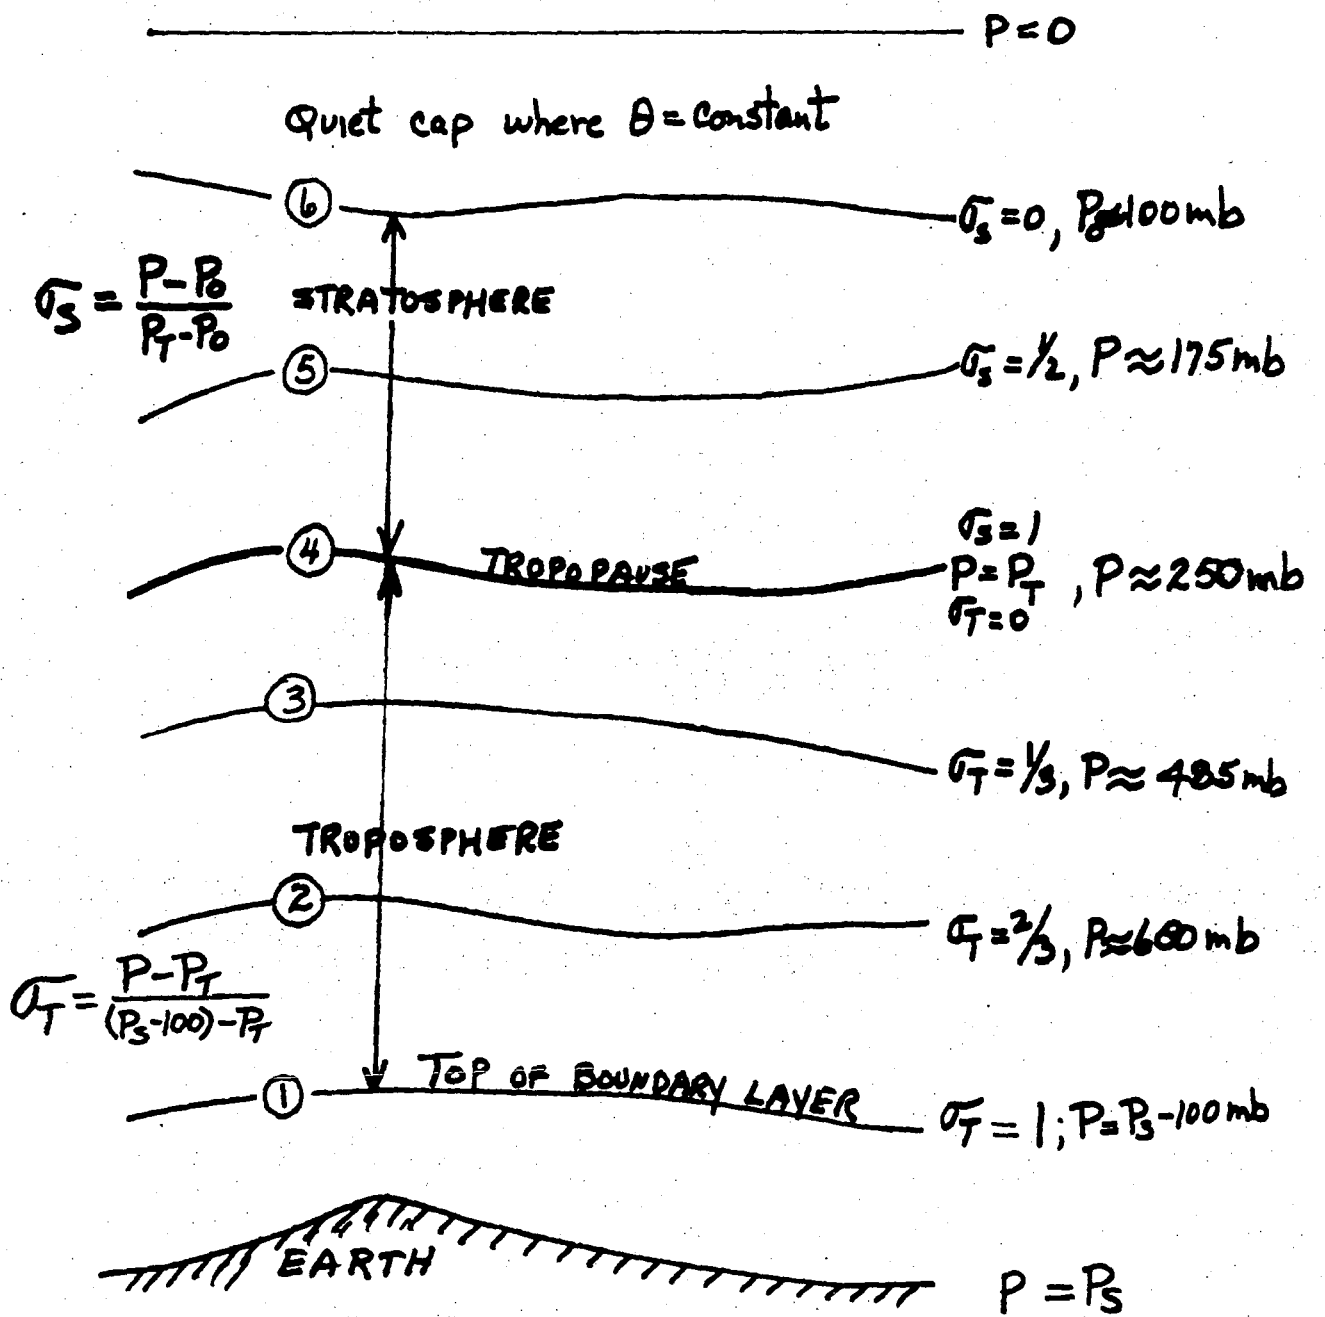 P = 0
Quiet cap where θ = constant
⑥
σ_S = 0, P_0≈100 mb
σ_S = (P - P_0) / (P_T - P_0)
STRATOSPHERE
⑤
σ_S = 1/2, P ≈ 175 mb
σ_S = 1
④
TROPOPAUSE
P = P_T , P ≈ 250 mb
σ_T = 0
③
σ_T = 1/3, P ≈ 485 mb
TROPOSPHERE
②
σ_T = 2/3, P ≈ 680 mb
σ_T = (P - P_T) / ((P_S - 100) - P_T)
①
TOP OF BOUNDARY LAYER
σ_T = 1; P = P_S - 100 mb
EARTH
P = P_S